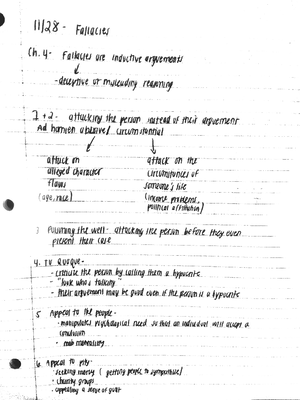 11/28 - Fallacies
Ch. 4- Fallacies are inductive arguements
- deceptive or misleading reasoning
1 + 2 - attacking the person instead of their arguement
Ad hominem abusive / circumstantial
attack on attack on the
alleged character circumstances of
flaws someone's life
(age, race) (income problems,
political affiliation)
3 Poisoning the well - attacking the person before they even
present their case
4. Tu Quoque -
- criticize the person by calling them a hypocrite
- "look who's talking"
- their arguement may be good even if the person is a hypocrite
5 Appeal to the people -
- manipulates psychological need so that an individual will accept a
conclusion
- mob mentality
6. Appeal to pity -
- seeking mercy ( getting people to sympathize)
- charity groups
- appealing a sense of guilt